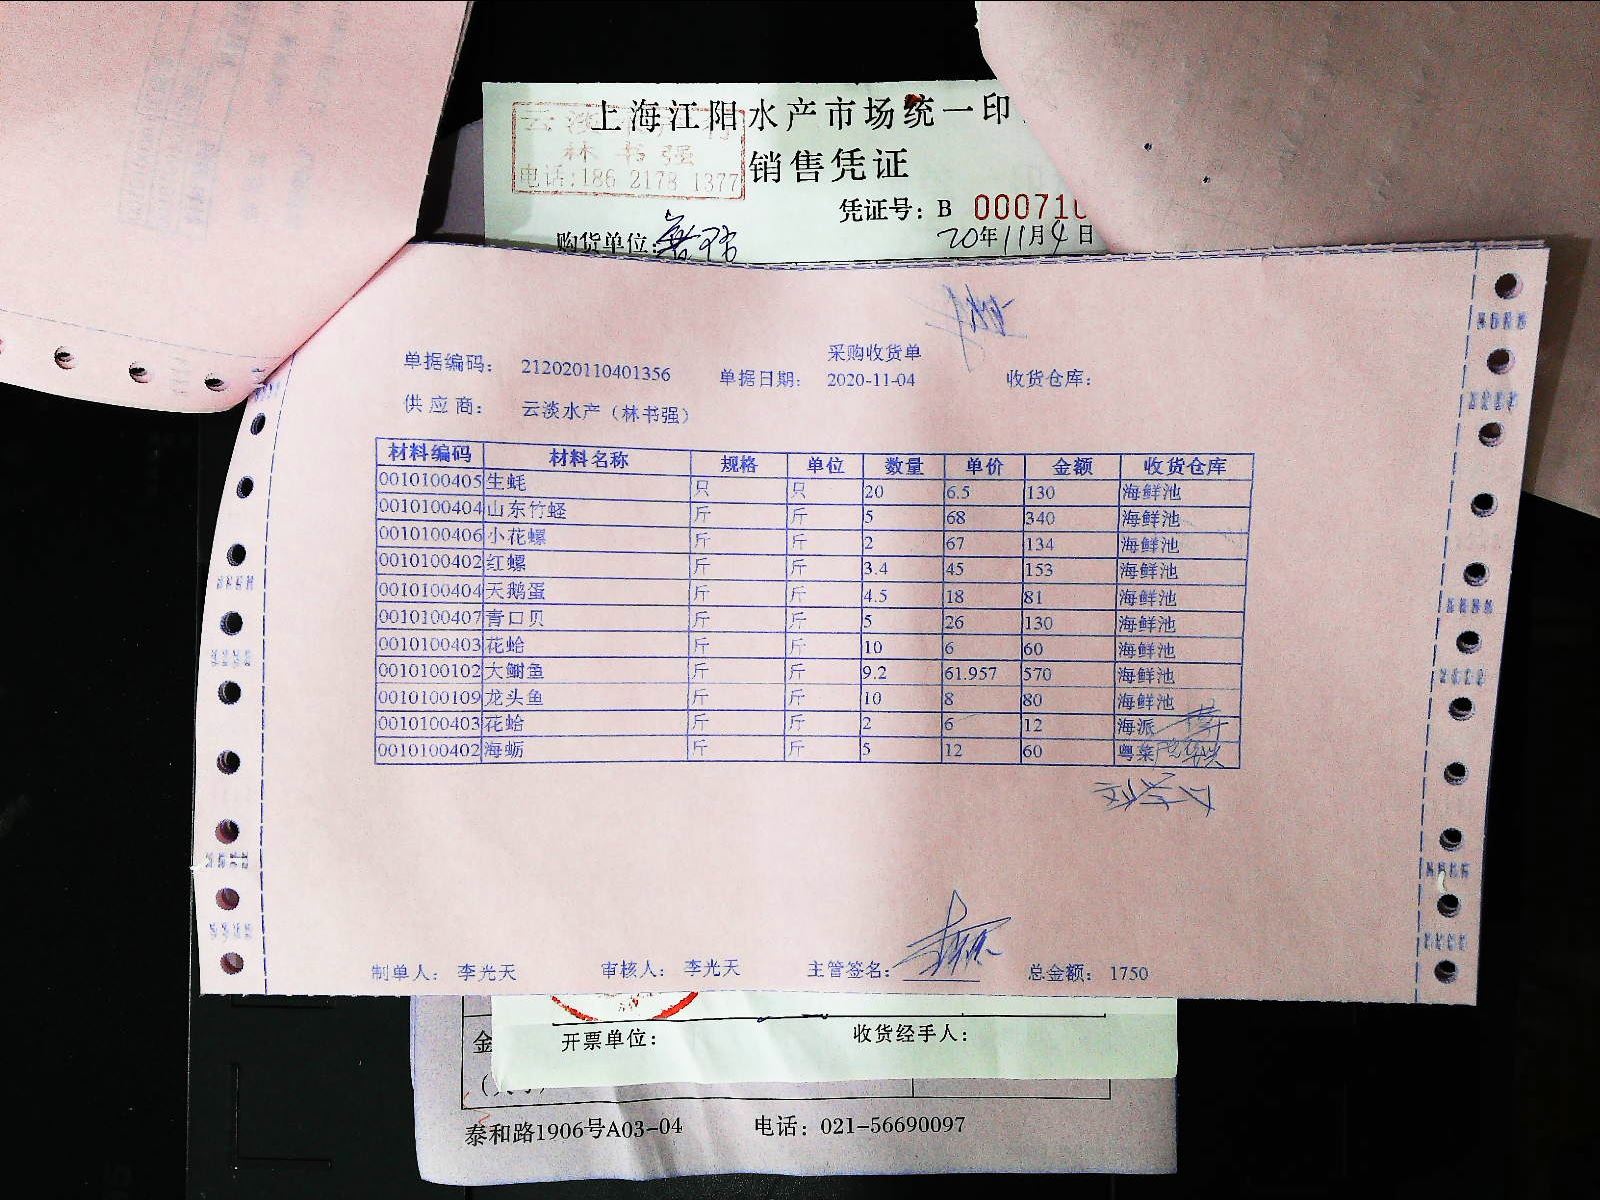 上海江阳水产市场统一印
云淡水产行
林书强
电话:186 2178 1377
销售凭证
凭证号：B 000710
购货单位：
20年11月4日
采购收货单
单据编码： 212020110401356 单据日期： 2020-11-04 收货仓库：
供应商： 云淡水产（林书强）
材料编码 材料名称 规格 单位 数量 单价 金额 收货仓库
0010100405 生蚝 只 只 20 6.5 130 海鲜池
0010100404 山东竹蛏 斤 斤 5 68 340 海鲜池
0010100406 小花螺 斤 斤 2 67 134 海鲜池
0010100402 红螺 斤 斤 3.4 45 153 海鲜池
0010100404 天鹅蛋 斤 斤 4.5 18 81 海鲜池
0010100407 青口贝 斤 斤 5 26 130 海鲜池
0010100403 花蛤 斤 斤 10 6 60 海鲜池
0010100102 大鲥鱼 斤 斤 9.2 61.957 570 海鲜池
0010100109 龙头鱼 斤 斤 10 8 80 海鲜池
0010100403 花蛤 斤 斤 2 6 12 海派
0010100402 海蛎 斤 斤 5 12 60 粤菜
制单人： 李光天 审核人： 李光天 主管签名： 总金额： 1750
开票单位： 收货经手人：
金
泰和路1906号A03-04 电话：021-56690097